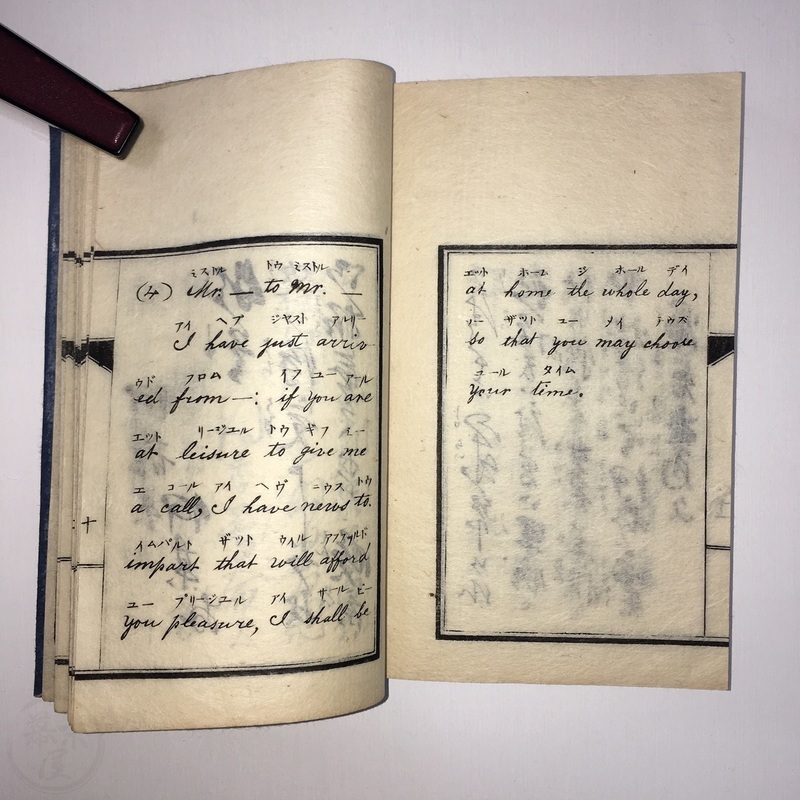 ミストル トウ ミストル
(4) Mr. — to Mr. —
アイ ヘブ ジヤスト アルリー
I have just arriv
ウド フロム イフ ユー アール
ed from —: if you are
エット リージユル トウ ギフ ミー
at leisure to give me
エ コール アイ ヘヴ ニウス トウ
a call, I have news to
イムパルト ザット ウイル アフヲルド
impart that will afford
ユー プリージユル アイ サール ビー
you pleasure, I shall be
十
エット ホーム ジ ホール デイ
at home the whole day,
ソー ザット ユー メイ チウズ
so that you may choose
ユール タイム
your time.